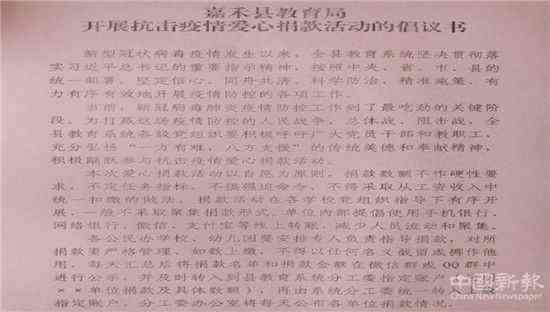 嘉禾县教育局
开展抗击疫情爱心捐款活动的倡议书
新型冠状病毒疫情发生以来，全县教育系统坚决贯彻落
实习近平总书记的重要指示精神，按照中央、省、市、县的
统一部署，坚定信心、同舟共济、科学防治、精准施策，有
力有序有效地开展疫情防控的各项工作。
当前，新冠病毒肺炎疫情防控工作到了最吃劲的关键阶
段，为打赢这场疫情防控的人民战争、总体战、阻击战，全
县教育系统各级党组织要积极呼吁广大党员干部和教职工，
充分弘扬“一方有难，八方支援”的传统美德和奉献精神，
积极踊跃参与抗击疫情爱心捐款活动。
本次爱心捐款活动以自愿为原则，捐款数额不作硬性要
求，不定任务指标，不搞强迫命令，不得采取从工资收入中
统一扣缴的做法。捐款活动在各学校党组织指导下有序开
展，一般不采取聚集捐款形式，单位内部提倡使用手机银行、
网络银行、微信、支付宝等线上转账，减少人员流动和聚集。
各公民办学校、幼儿园要安排专人负责指导捐款，对所
捐款要严格管理，如数上缴，不得以任何名义截留或挪作他
用。每天汇总后将捐款名单和捐款金额在微信群或QQ群中
进行公示，并及时转入到县教育系统分工委指定账户（
××单位捐款及具体数额），再由系统分工委统一转
指定账户。分工委办公室将每天公布各单位捐款情况。
中國新報
China NewNewspaper